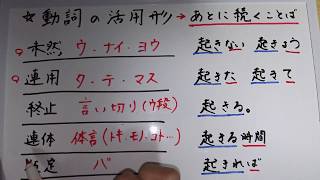 ☆動詞の活用形→あとに続くことば
未然 ウ・ナイ・ヨウ 起きない 起きよう
連用 タ・テ・マス 起きた 起きて
終止 言い切り(ウ段) 起きる。
連体 体言(トキ、モノ、コト…) 起きる時間
足 バ 起きれば